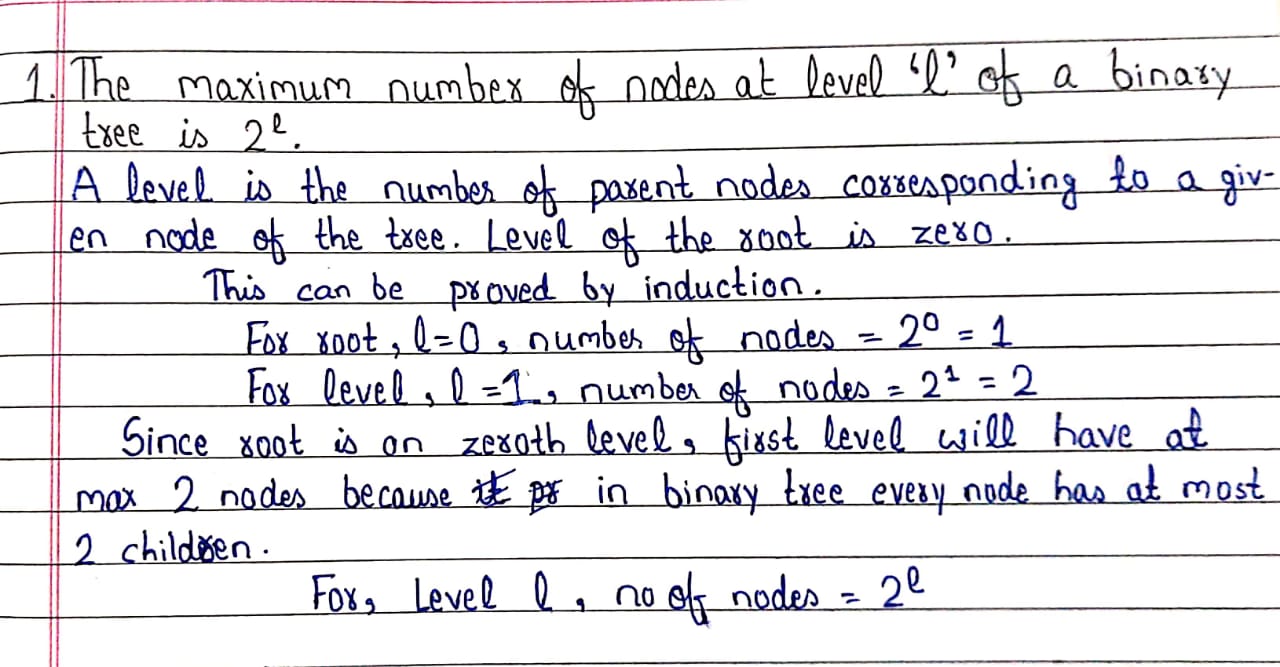 1. The maximum number of nodes at level 'l' of a binary
tree is 2^l.
A level is the number of parent nodes corresponding to a giv-
en node of the tree. Level of the root is zero.
This can be proved by induction.
For root, l=0, number of nodes = 2^0 = 1
For level, l =1, number of nodes = 2^1 = 2
Since root is on zeroth level, first level will have at
max 2 nodes because in binary tree every node has at most
2 children.
For, Level l, no of nodes = 2^l